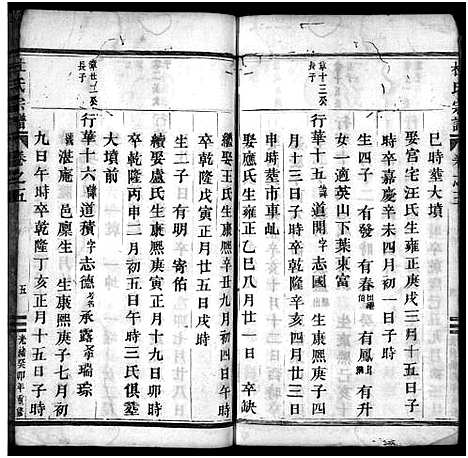 巳時葬大墳
娶宮宅汪氏生雍正庚戌三月十五子
時卒嘉慶辛未四月初一日子時
生四子 二 有發 時 有春 有鳳 有升
女一適英山下葉東富
章十三公長子
行華十五 道開字 志國 生康熙庚子四
月三十日子時卒乾隆辛亥十月十二日
申時葬市車乢
娶應氏生雍正乙巳八月廿一日 卒缺
繼娶王氏生康熙辛丑九月初四日午時
卒乾隆戊寅正月廿五日戌時
生二子 日 有明 寄伯
續娶盧氏生康熙庚寅正月十九日卯時
卒乾隆丙申二月初五日午時三氏俱葬
大墳前
章廿二公長子
行華十六 道積字 志德 承露 瑞琮
湛庵 邑廩生 生康熙庚子七月初
九日午時卒乾隆丁亥正月十五日子時
氏宗譜 卷之五 五 光緒癸卯年重修